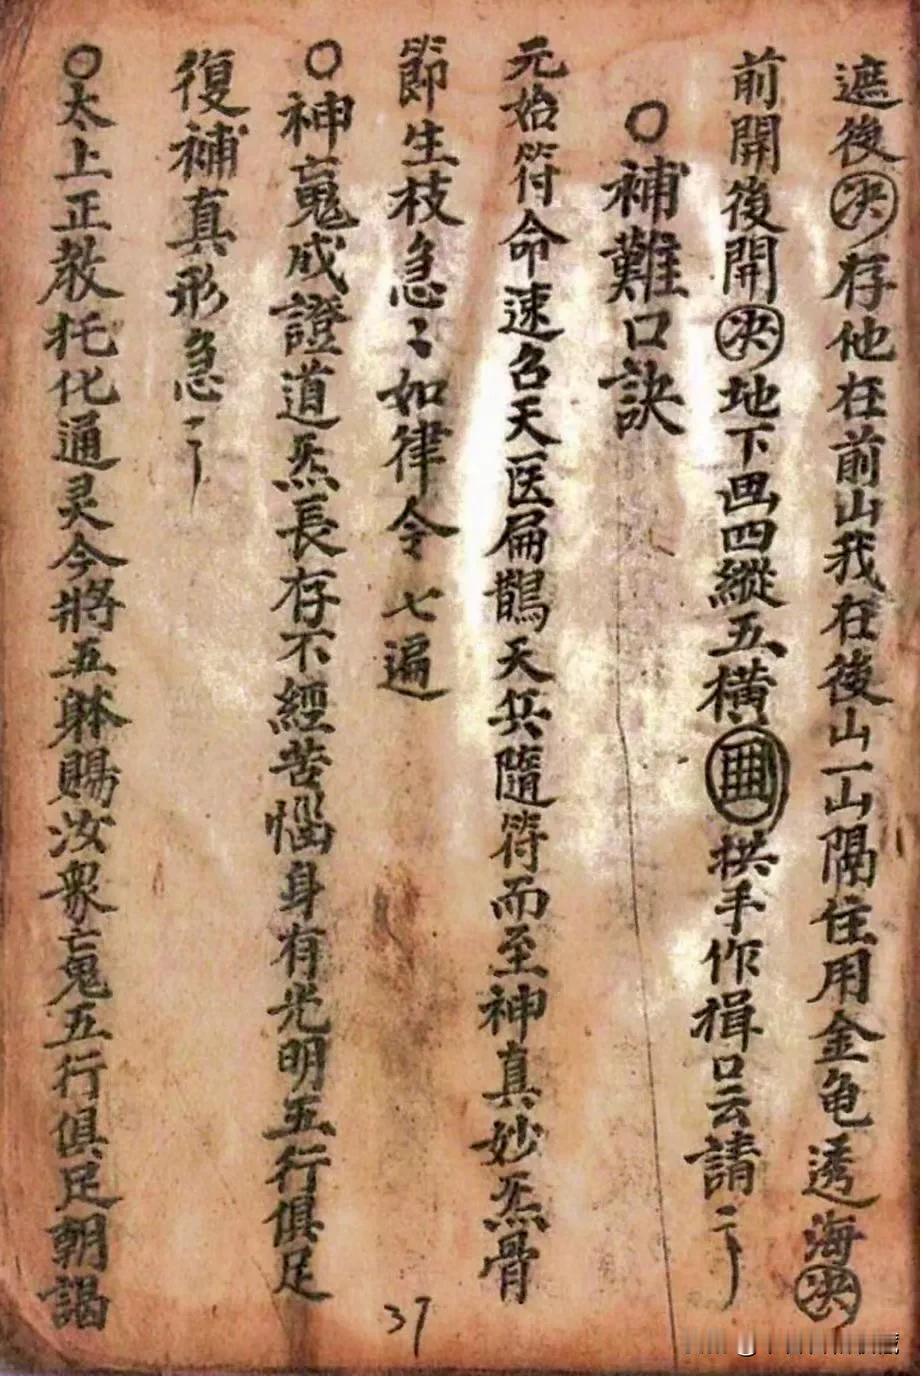 遮後决存他在前山我在後山一山隔住用金龟透海决
前開後開决地下画四縱五横拱手作揖口云請〻
〇補難口訣
元始符命速召天医扁鵲天兵隨符而至神真妙炁骨
節生枝急〻如律令 七遍
〇神鬼成證道炁長存不經苦惱身有光明五行俱足
復補真形急〻
〇太上正教托化通灵今將五躰賜汝衆亡鬼五行俱足朝謁
37